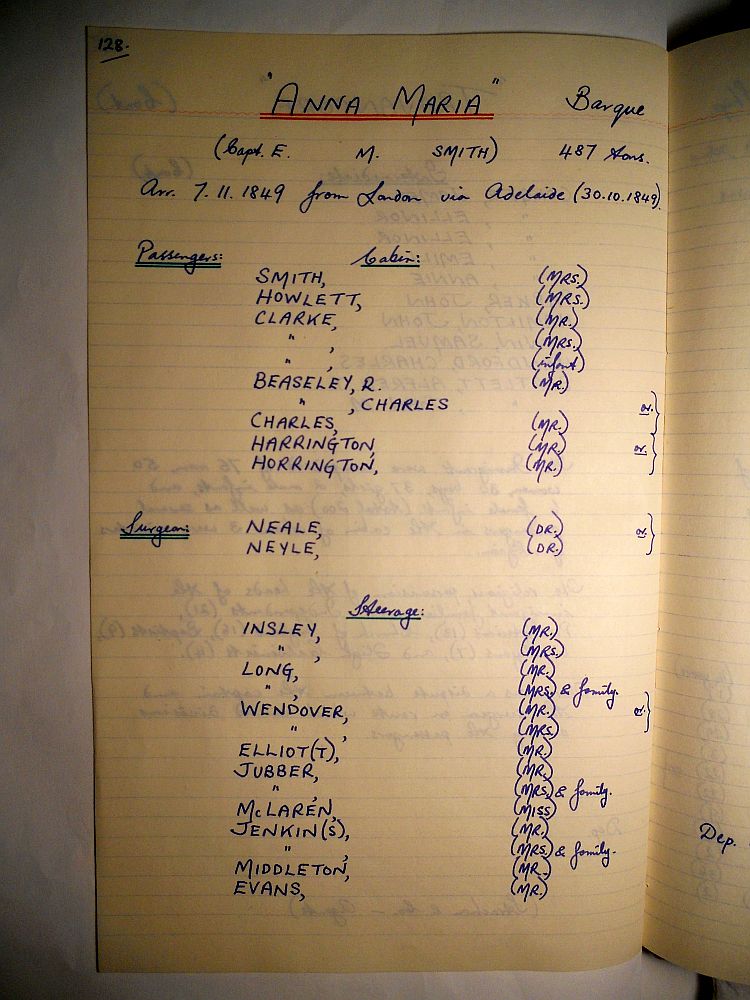 128.
"ANNA MARIA" Barque
(Capt. E. M. SMITH) 487 tons.
Arr. 7.11.1849 from London via Adelaide (30.10.1849)
Passengers: Cabin:
SMITH, (MRS.)
HOWLETT, (MRS.)
CLARKE, (MR.)
" , (MRS.)
" , (infant)
BEASELEY, R. (MR.)
" , CHARLES or.}
CHARLES, (MR.)
HARRINGTON, (MR.) or.}
HORRINGTON, (MR.)
Surgeon: NEALE, (DR.) or.}
NEYLE, (DR.)
Steerage:
INSLEY, (MR.)
" , (MRS.)
LONG, (MR.)
" , (MRS.) & family.
WENDOVER, (MR.) or.}
" , (MRS.)
ELLIOT(T), (MR.)
JUBBER, (MR.)
" , (MRS.) & family.
McLAREN, (MISS)
JENKIN(S), (MR.)
" , (MRS.) & family.
MIDDLETON, (MR.)
EVANS, (MR.)
Dep.